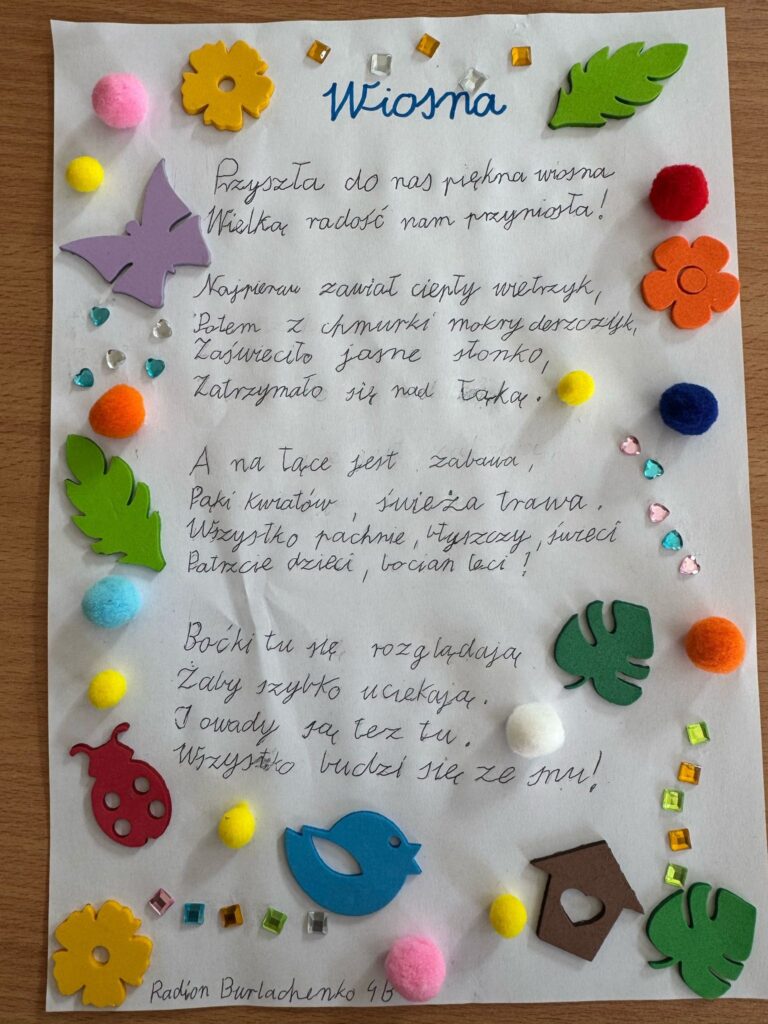 Wiosna
Przyszła do nas piękna wiosna
Wielką radość nam przyniosła!
Najpierw zawiał ciepły wietrzyk,
Potem z chmurki mokry deszczyk,
Zaświeciło jasne słonko,
Zatrzymało się nad łąką.
A na łące jest zabawa,
Pąki kwiatów, świeża trawa.
Wszystko pachnie, błyszczy, świeci
Patrzcie dzieci, bocian leci!
Boćki tu się rozglądają
Żaby szybko uciekają.
I owady są też tu.
Wszystko budzi się ze snu!
Radion Burlachenko 4b